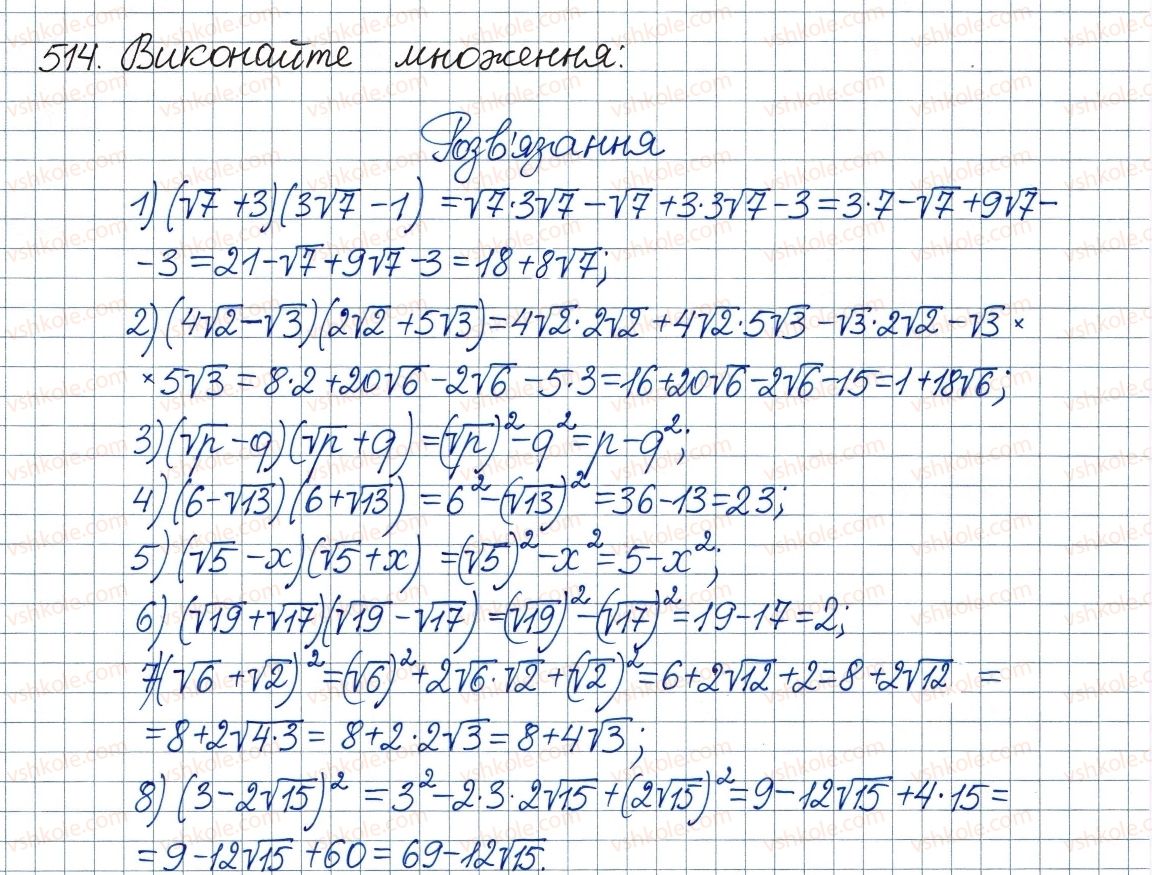 514. Виконайте множення:
Розв'язання
1) (√7 + 3)(3√7 − 1) = √7·3√7 − √7 + 3·3√7 − 3 = 3·7 − √7 + 9√7 −
− 3 = 21 − √7 + 9√7 − 3 = 18 + 8√7;
2) (4√2 − √3)(2√2 + 5√3) = 4√2·2√2 + 4√2·5√3 − √3·2√2 − √3 ×
× 5√3 = 8·2 + 20√6 − 2√6 − 5·3 = 16 + 20√6 − 2√6 − 15 = 1 + 18√6;
3) (√p − q)(√p + q) = (√p)² − q² = p − q²;
4) (6 − √13)(6 + √13) = 6² − (√13)² = 36 − 13 = 23;
5) (√5 − x)(√5 + x) = (√5)² − x² = 5 − x²;
6) (√19 + √17)(√19 − √17) = (√19)² − (√17)² = 19 − 17 = 2;
7) (√6 + √2)² = (√6)² + 2√6·√2 + (√2)² = 6 + 2√12 + 2 = 8 + 2√12 =
= 8 + 2√4·3 = 8 + 2·2√3 = 8 + 4√3;
8) (3 − 2√15)² = 3² − 2·3·2√15 + (2√15)² = 9 − 12√15 + 4·15 =
= 9 − 12√15 + 60 = 69 − 12√15.
vshkole.com